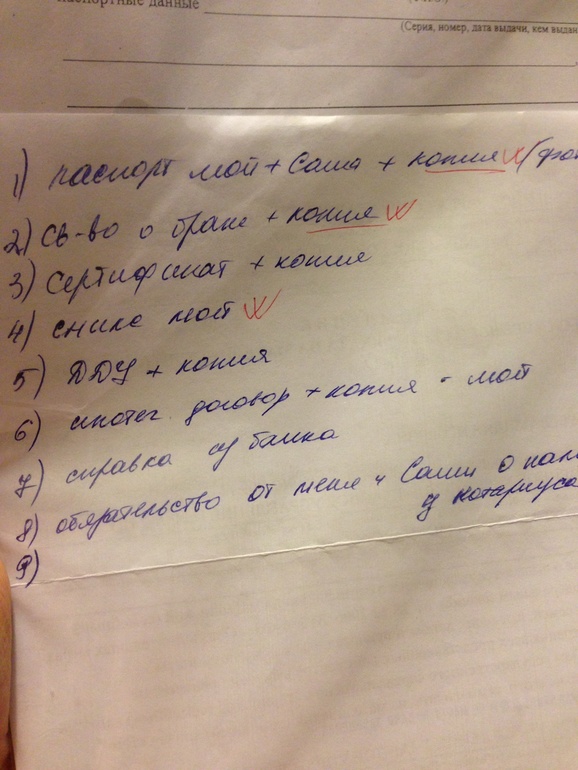 паспортные данные
(Серия, номер, дата выдачи, кем выдан
1) паспорт мой + Саша + копия (фот
2) Св-во о браке + копия
3) Сертификат + копия
4) снилс мой
5) ДДУ + копия
6) ипотег. договор + копия - мой
7) справка из банка
8) обязательство от меня и Саши о нал
у нотариуса
9)